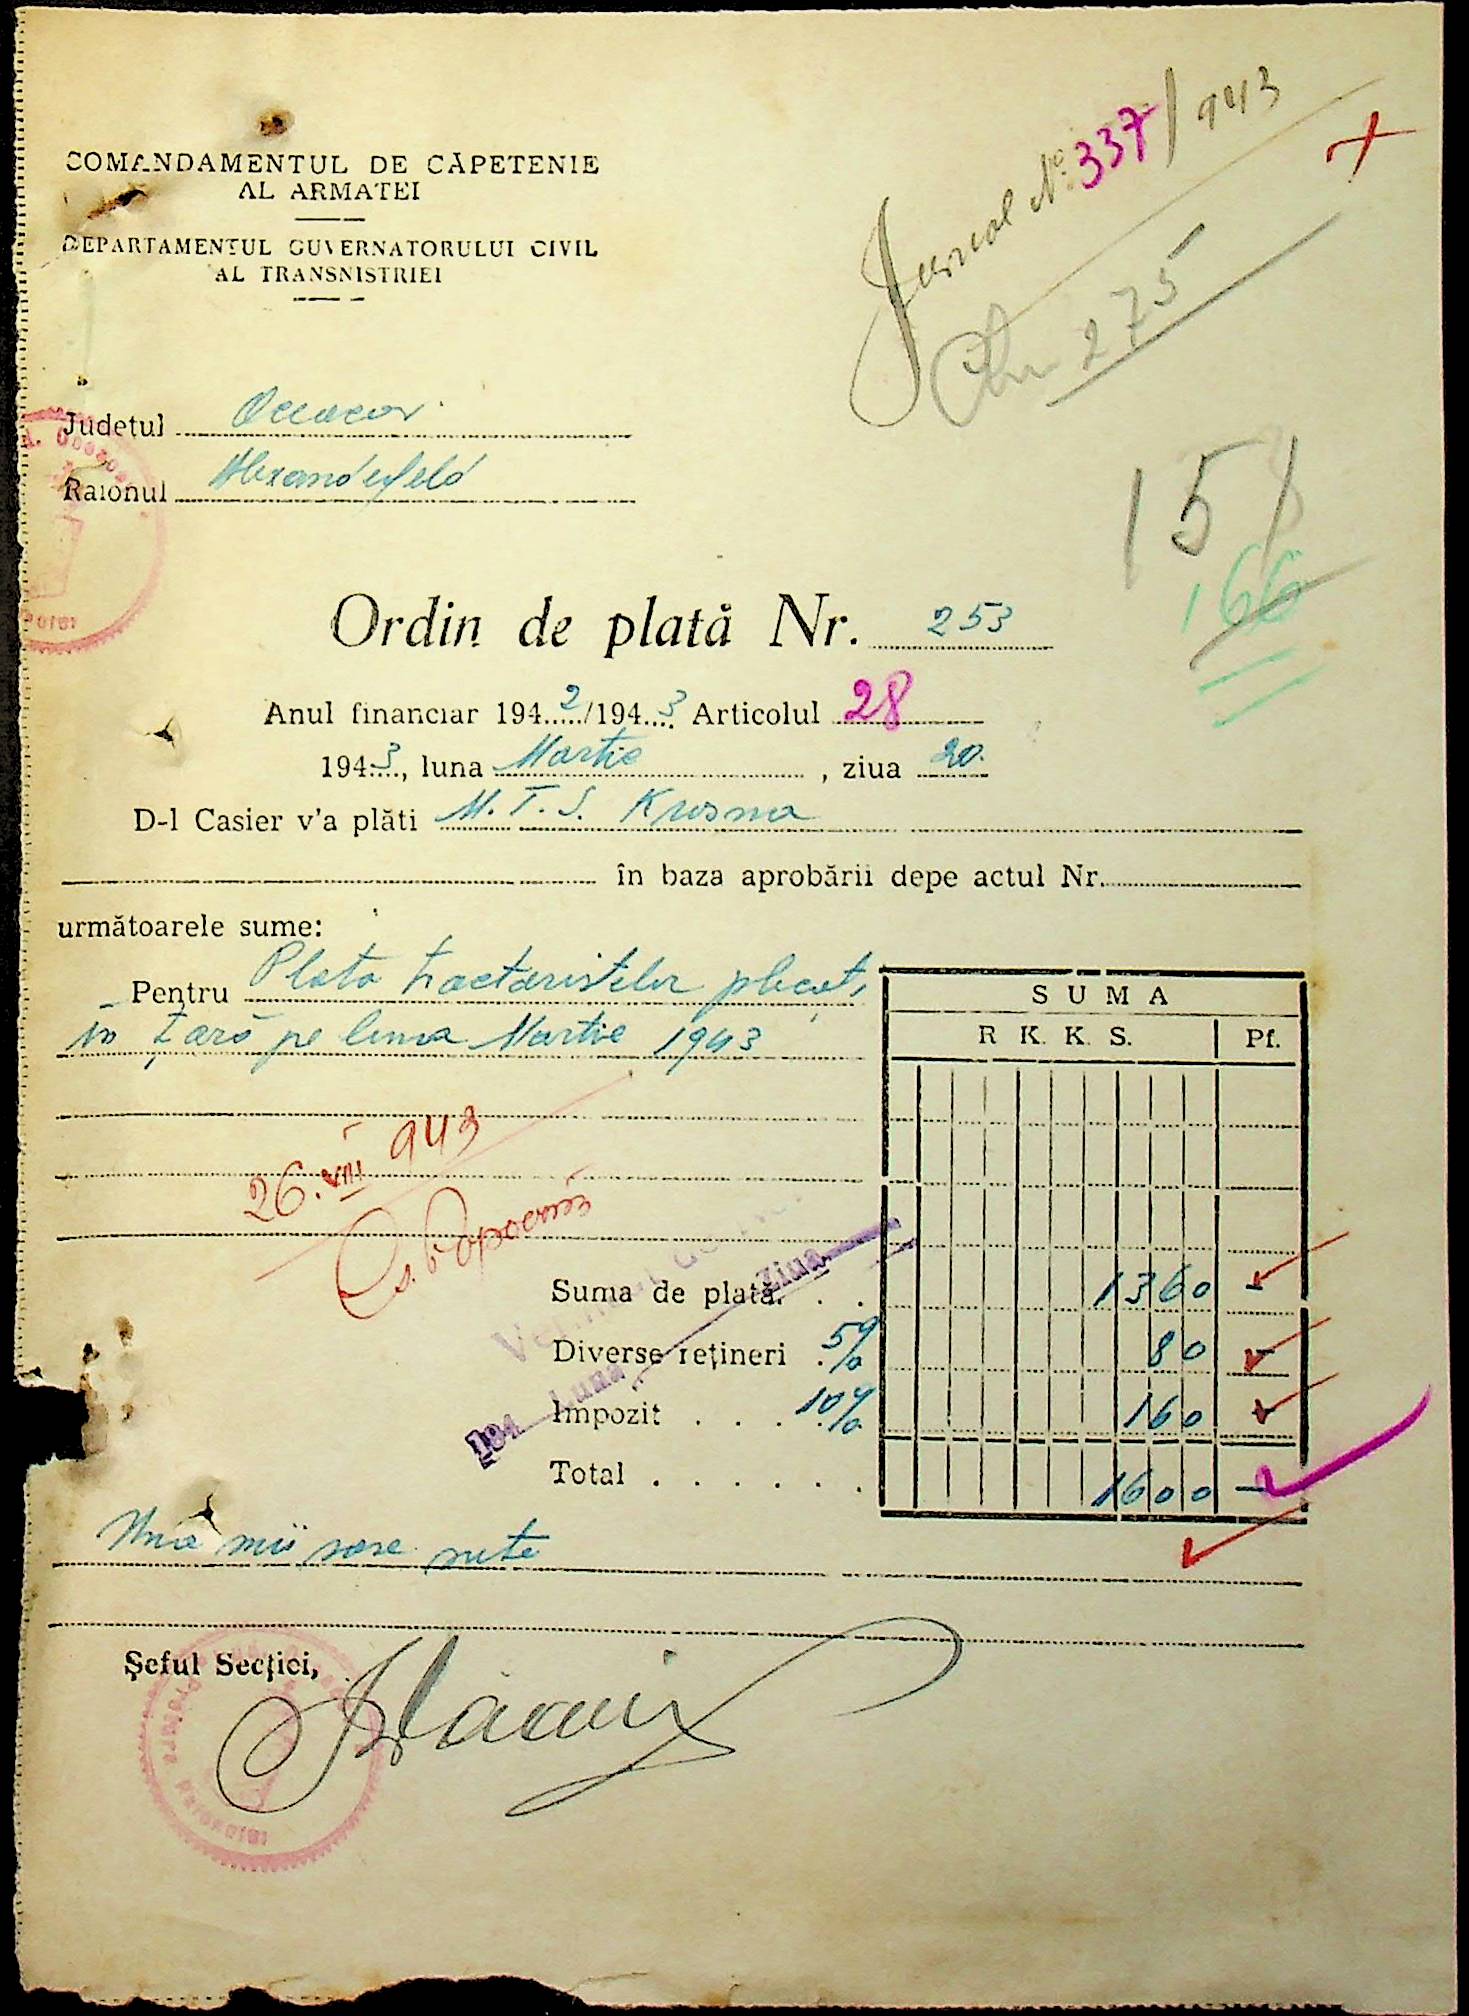 COMANDAMENTUL DE CĂPETENIE
AL ARMATEI
DEPARTAMENTUL GUVERNATORULUI CIVIL
AL TRANSNISTRIEI
Jurnal No. 337/943
275
Judetul Oceacov
Raionul Alexanderfeld
151
166
Ordin de plată Nr. 253
Anul financiar 1942/1943 Articolul 28
1943, luna Martie, ziua 20.
D-l Casier v'a plăti M. T. S.
în baza aprobării depe actul Nr.
următoarele sume:
Pentru Plata tractoristilor plecați
în țară pe luna Martie 1943
SUMA
R. K. K. S. Pf.
26.VIII 943
Suma de plată. . . 1360 -
Diverse rețineri 5% 80 -
Impozit . . . 10% 160 -
Total . . . . . . 1600 -
194 Luna Ziua
Una mii șase sute
Șeful Secției,